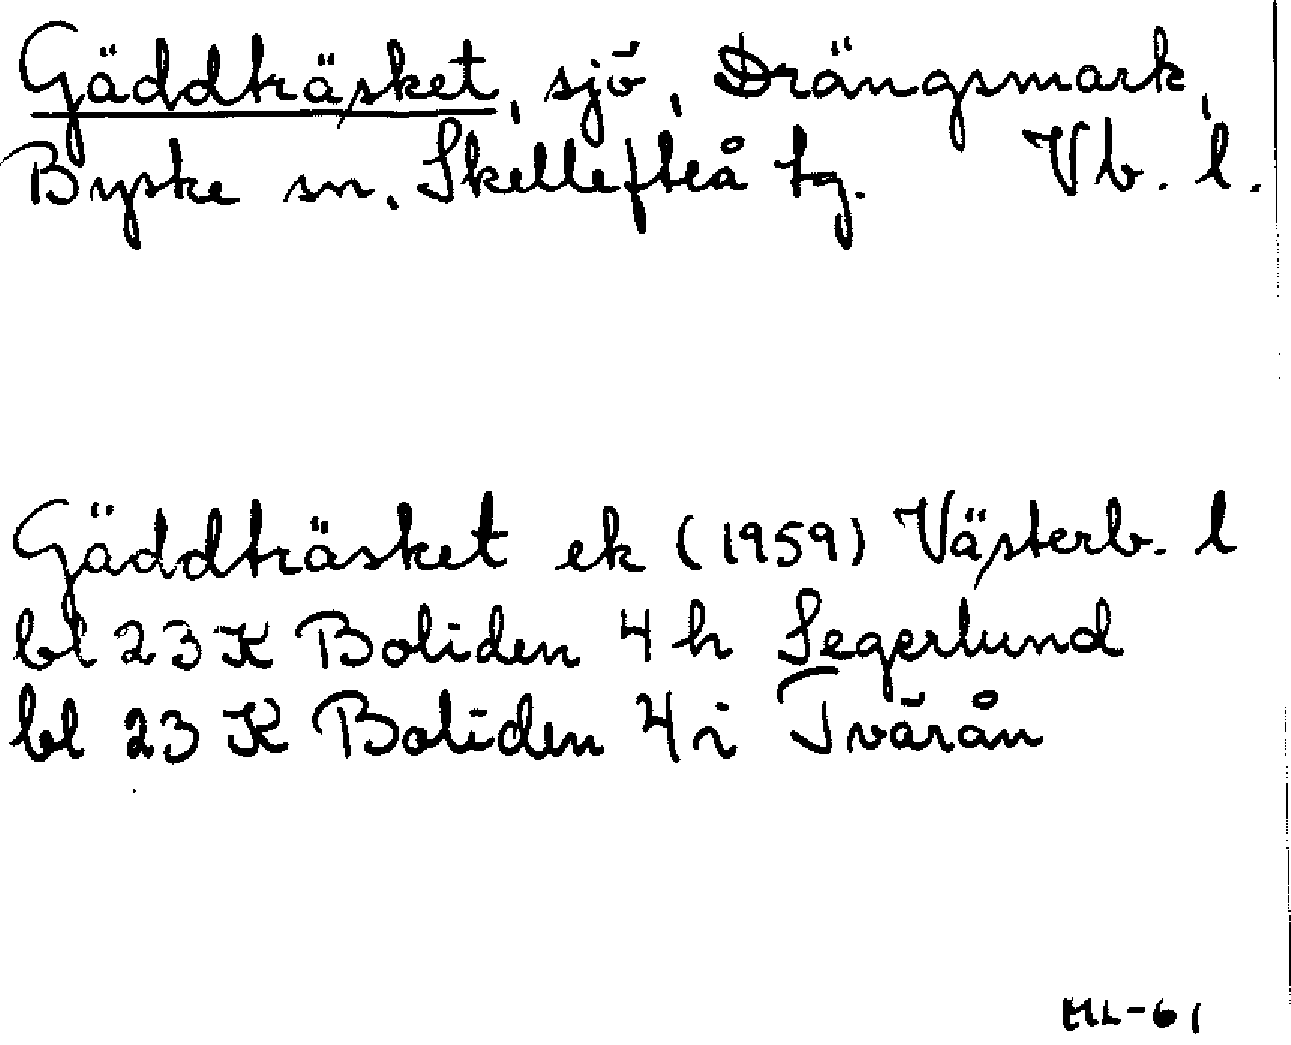 Gäddträsket, sjö, Drängsmark,
Byske sn, Skellefteå tg. Vb. l.
Gäddträsket ek (1959) Västerb. l
bl 23 K Boliden 4 h Segerlund
bl 23 K Boliden 4 i Tvärån
HL-61